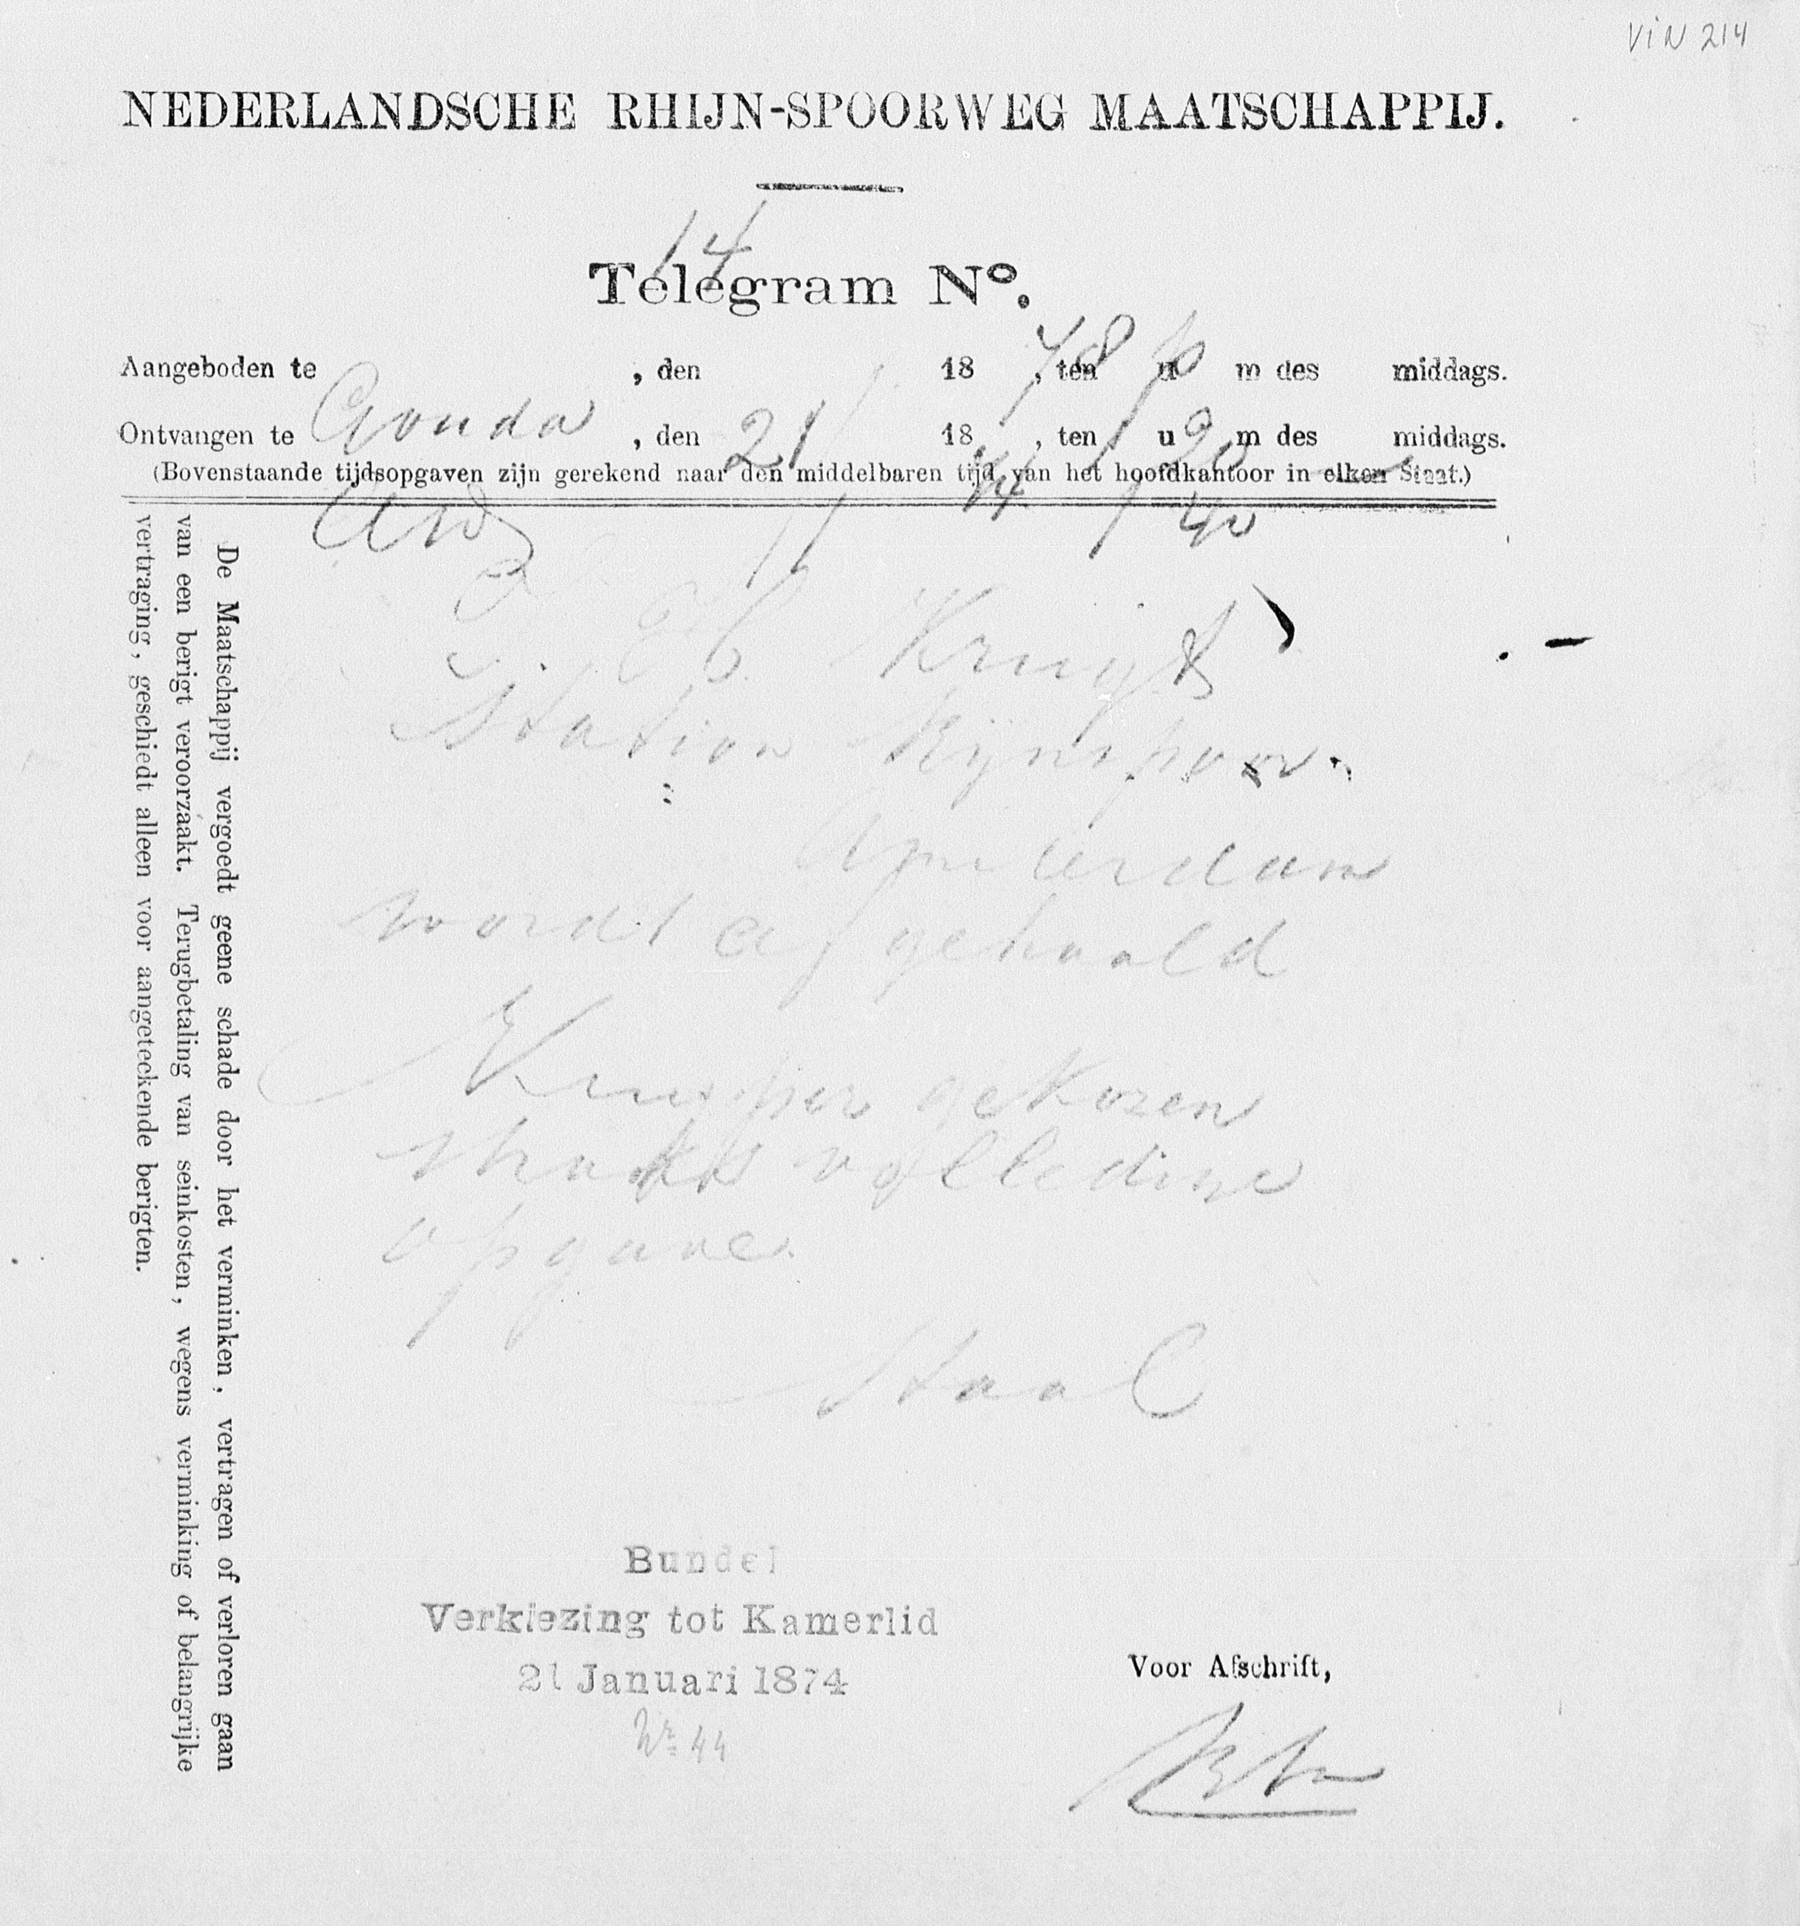 VIN 214
NEDERLANDSCHE RHIJN-SPOORWEG MAATSCHAPPIJ.
14
Telegram No.
Aangeboden te , den 18 , ten u m des middags.
Gouda 21/1 74 1 u 20
Ontvangen te , den 18 , ten u m des middags.
(Bovenstaande tijdsopgaven zijn gerekend naar den middelbaren tijd van het hoofdkantoor in elken Staat.)
1 40
Kruyt
Station Rijnspoor
Amsterdam
wordt afgehaald
Kuyper gekozen
straks volledige
opgave
Staal
De Maatschappij vergoedt geene schade door het verminken, vertragen of verloren gaan
van een berigt veroorzaakt. Terugbetaling van seinkosten, wegens verminking of belangrijke
vertraging, geschiedt alleen voor aangeteekende berigten.
Bundel
Verkiezing tot Kamerlid
21 Januari 1874
Nr 44
Voor Afschrift,